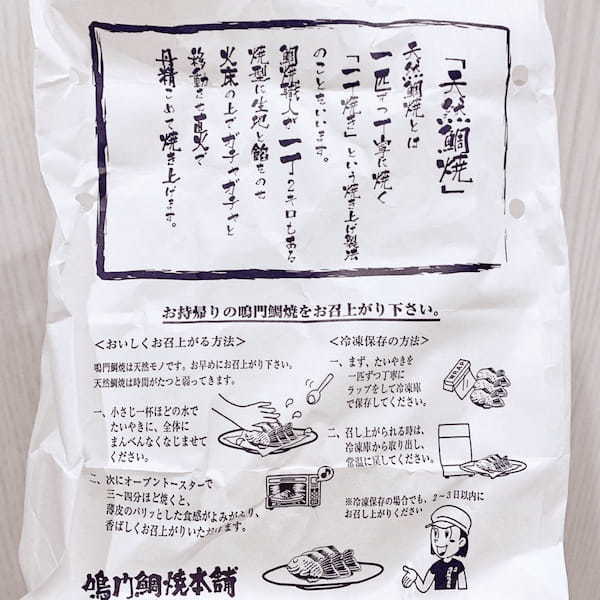 「天然鯛焼」
天然鯛焼とは
一匹ずつ丁寧に焼く
「一丁焼き」という焼き上げ製法
のことをいいます。
鯛焼職人が一丁2キロもある
焼型に生地と餡をのせ
火床の上でガチャガチャと
移動させ直火で
丹精こめて焼き上げます。
お持帰りの鳴門鯛焼をお召上がり下さい。
＜おいしくお召上がる方法＞
鳴門鯛焼は天然モノです。お早めにお召上がり下さい。
天然鯛焼は時間がたつと弱ってきます。
一、小さじ一杯ほどの水で
たいやきに、全体に
まんべんなくなじませて
ください。
二、次にオーブントースターで
三〜四分ほど焼くと、
薄皮のパリッとした食感がよみがえり、
香ばしくお召上がりいただけます。
＜冷凍保存の方法＞
一、まず、たいやきを
一匹ずつ丁寧に
ラップをして冷凍庫
で保存してください。
二、召し上がられる時は、
冷凍庫から取り出し、
常温に戻してください。
※冷凍保存の場合でも、2〜3日以内に
お召し上がりください
鳴門鯛焼本舗